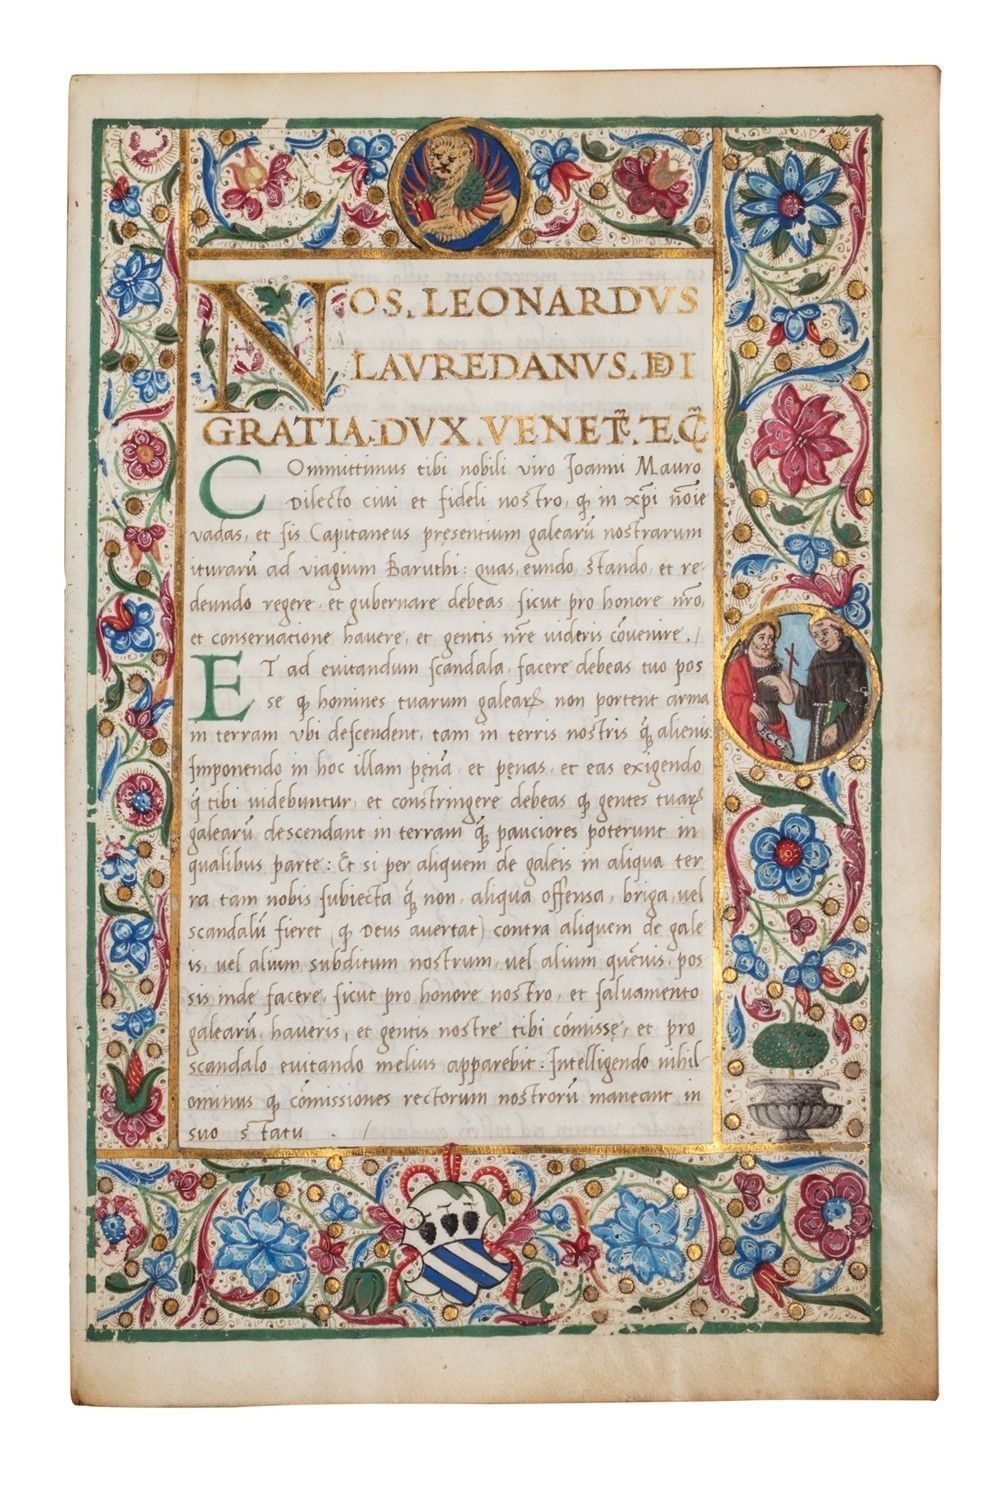 NOS. LEONARDVS
LAVREDANVS. DEI
GRATIA. DVX. VENET̃. E.C̃
COmmittimus tibi nobili viro Joanni Mauro
Dilecto ciui et fideli nostro, q̃ in xp̃i nõie
vadas, et sis Capitaneus presentium galearũ nostrarum
iturarũ ad viagium Baruthi: quas, eundo, stando, et re-
deundo regere, et gubernare debeas, sicut pro honore nr̃o,
et conseruatione hauere, et gentis nr̃e uideris cõuenire. /
ET ad euitandum scandala, facere debeas tuo pos
se q̃ homines tuarum galearꝝ non portent arma
in terram vbi descendent, tam in terris nostris q̃ alienis:
Imponendo in hoc illam pęnã, et pęnas, et eas exigendo
q̃ tibi uidebuntur, et constringere debeas q̃ gentes tuarꝝ
galearũ descendant in terram q̃ pauciores poterunt in
qualibus parte: Et si per aliquem de galeis in aliqua ter
ra tam nobis subiecta q̃ non, aliqua offensa, briga, uel
scandalũ fieret (q̃ Deus auertat) contra aliquem de gale
is, uel alium subditum nostrum, uel alium quẽuis, pos
sis inde facere, sicut pro honore nostro, et saluamento
galearũ, haueris, et gentis nostre tibi cõmissę, et pro
scandalo euitando melius apparebit: Intelligendo nihil-
ominus q̃ cõmissiones rectorum nostrorũ maneant in
suo statu . /
ECCE